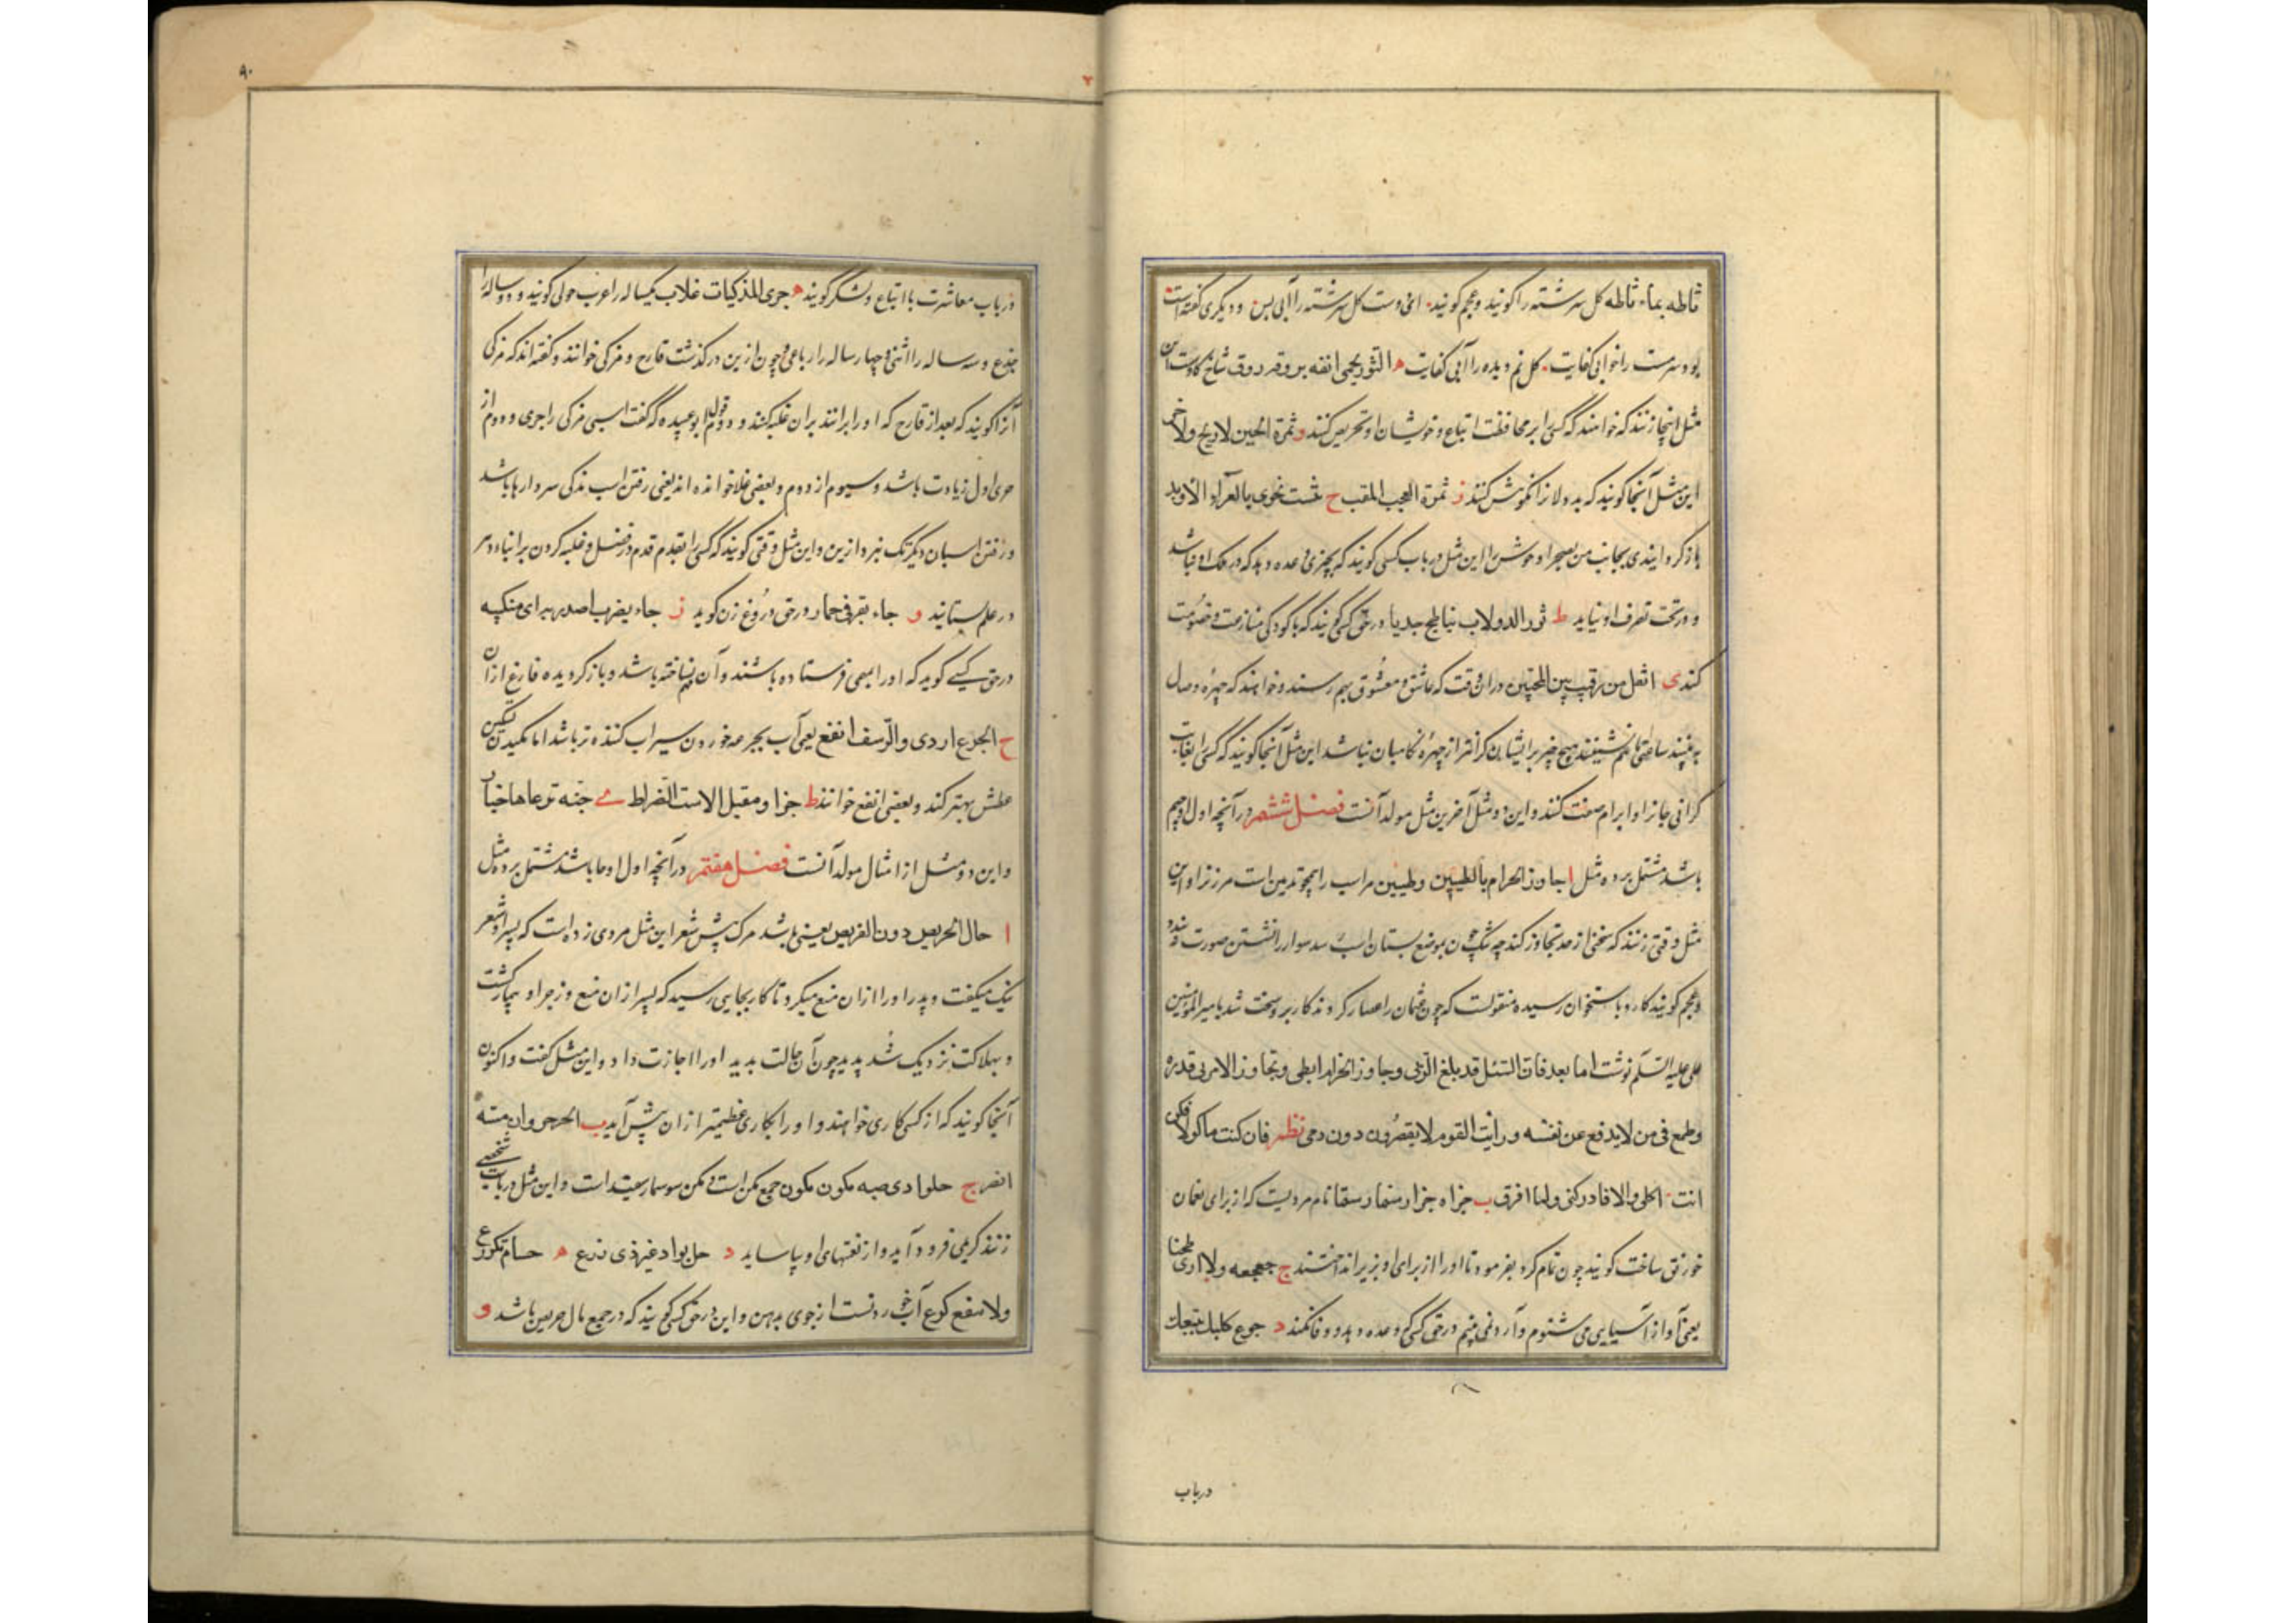 ثاطه بماء ثاطه کل سرشته را کویند و عجم کویند. انی دست کل سرشته را آبی بس و دیکری کفته است
بود سرمست را خوابی کفایت. کل نم دیده را آبی کفایت ه الثور یحمی انفه بروقه روق شاخ کاوست این
مثل اینجا زنند که خواهند که کسی را بر محافظت اتباع و خویشان او تحریص کنند و ثمرة الجبن لا ربح ولا خسر
این مثل آنجا کویند که بد ولان را نکوهش کنند ز ثمرة العجب المقت ح
باز کردانیدی بجانب من بصحرا وحوش را این مثل در باب کسی کویند که بچیزی وعده دهد که در ملک او نباشد
و در تحت تصرف او نیاید ط ثور الدولاب نیاطح جدیا در حق کسی کویند که با کودکی منازعت و خصومت
کند ی اثقل من رقیب بین المحبین در ان وقت که عاشق و معشوق بهم رسند و خواهند که چهره وصال
به بینند ساعتی با هم نشینند هیچ چیز بر ایشان کرانتر از چهره نکاهبان نباشد این مثل آنجا کویند که کسی را بغایت
کرانی جان او ابرام صفت کنند و این دو مثل آخرین مثل مولد آنست فصل ششم در آنچه اول او جیم
باشد مشتمل بر ده مثل ا جاوز الحزام الطبیین وطبیین مر اسب را همچو ثدیین است مر زن را و این
مثل وقتی زنند که سخنی از حد تجاوز کند چه تنک چون بموضع پستان اسب رسد سوار را نشستن صورت نبندد
و عجم کویند کارد باستخوان رسیده منقولست که چون عثمان را حصار کردند کار بر و سخت شد بامیر المؤمنین
علی علیه السلم نوشت اما بعد فان السیل قد بلغ الزبی وجاوز الحزام الطبی وتجاوز الامر بی قدره
وطمع فی من لا یدفع عن نفسه ورأیت القوم لا یقصرون دون دمی نظم فان کنت ماکولا فکن
انت اکلی والا فادرکنی ولما امزق ب جزاه جزاء سنمار سنمار نام مردیست که از برای نعمان
خورنق ساخت کویند چون تمام کرد بفرمود تا او را از برای او بزیر انداختند ج جعجعه ولا اری طحنا
یعنی آواز آسیایی می شنوم و آرد نمی بینم در حق کسی که وعده دهد و وفا نکند د جوع کلبک یتبعک
در باب
۹۰
در باب معاشرت با اتباع و لشکر کویند ه جری المذکیات غلاب یکساله را عرب حولی کویند و دو ساله را
جذع و سه ساله را اثنی و چهار ساله را رباعی و چون ازین در کذشت قارح و مزکی خوانند و کفته اند که مزکی
آنرا کویند که بعد از قارح که او را برانند بران غلبه کند و دوم قول ابو عبیده که کفت اسبی مزکی را جری دوم از
جری اول زیادت باشد و سیوم از دوم و بعضی غلا خوانده اند یعنی رفتن اسب مذکی سر وار ها باشد
و رفتن اسبان دیکر تک نبرد ازین و این مثل وقتی کویند که کسی را بتقدم قدم در فضل و غلبه کردن بر ابناء دهر
در علم ستانید و جاء بقرنی حمار در حق دروغ زن کوید ز جاء یضرب اصدریه برای منکبیه
در حق کسی کوید که او را بمهمی فرستاده باشند و آن مهم نساخته باشد و باز کردیده فارغ از ان
ح الجرع اروی والرشف انقع یعنی آب بجرعه خوردن سیراب کننده تر باشد اما مکیدن تسکین
عطش بهتر کند و بعضی انفع خوانند ط جزاء مقبل الاست الضراط ی جنة ترعاها خنازیر
و این دو مثل از امثال مولد آنست فصل هفتم در آنچه اول او حا باشد مشتمل بر ده مثل
ا حال الجریض دون القریض یعنی باشد مرک پیش شعر این مثل مردی زده است که پسر او شعر
نیک میکفت و پدر او را از ان منع میکرد تا کار بجایی رسید که پسر از ان منع و زجر او بیمار کشت
و بهلاکت نزدیک شد پدر چون آن حالت بدید او را اجازت داد و این مثل کفت و اکنون
آنجا کویند که از کسی کاری خواهند و او را کاری عظیمتر از ان پیش آید ب الحر حر وان مسه
الضر ج حلوا دی ضبه مکون مکون جمع مکن است و مکن سوسمار سفید است و این مثل در باب شخصی
زنند کریمی فرود آید و از نعتهای او بیاساید د حل بواد غیر ذی زرع ه حسام تکرع
ولا تنقع کرع آب خوردنست از جوی بدهن و این در حق کسی کویند که در جمع مال حریص باشد و